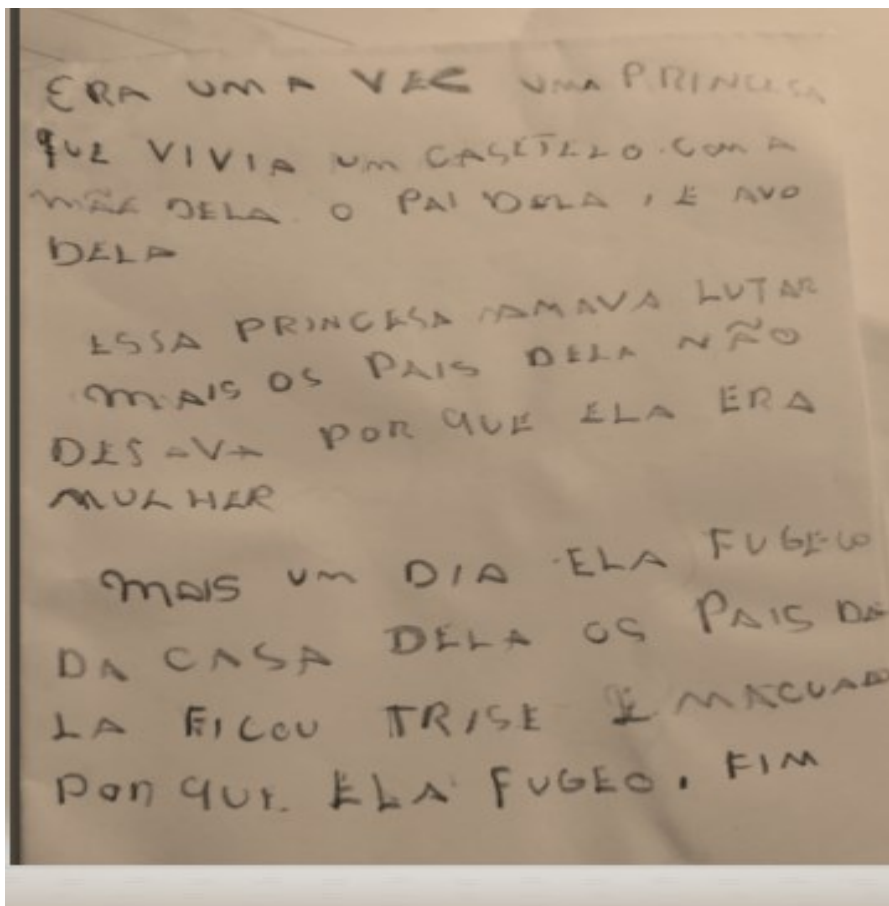 ERA UMA VEC UMA PRINCESA
QUE VIVIA UM CASETELO. COM A
MÃE DELA. O PAI DELA, E AVO
DELA
ESSA PRINCESA AMAVA LUTAR
MAIS OS PAIS DELA NÃO
DESAVA POR QUE ELA ERA
MULHER
MAIS UM DIA ELA FUGEO
DA CASA DELA OS PAIS DE
LA FICOU TRISE E
POR QUE ELA FUGEO. FIM